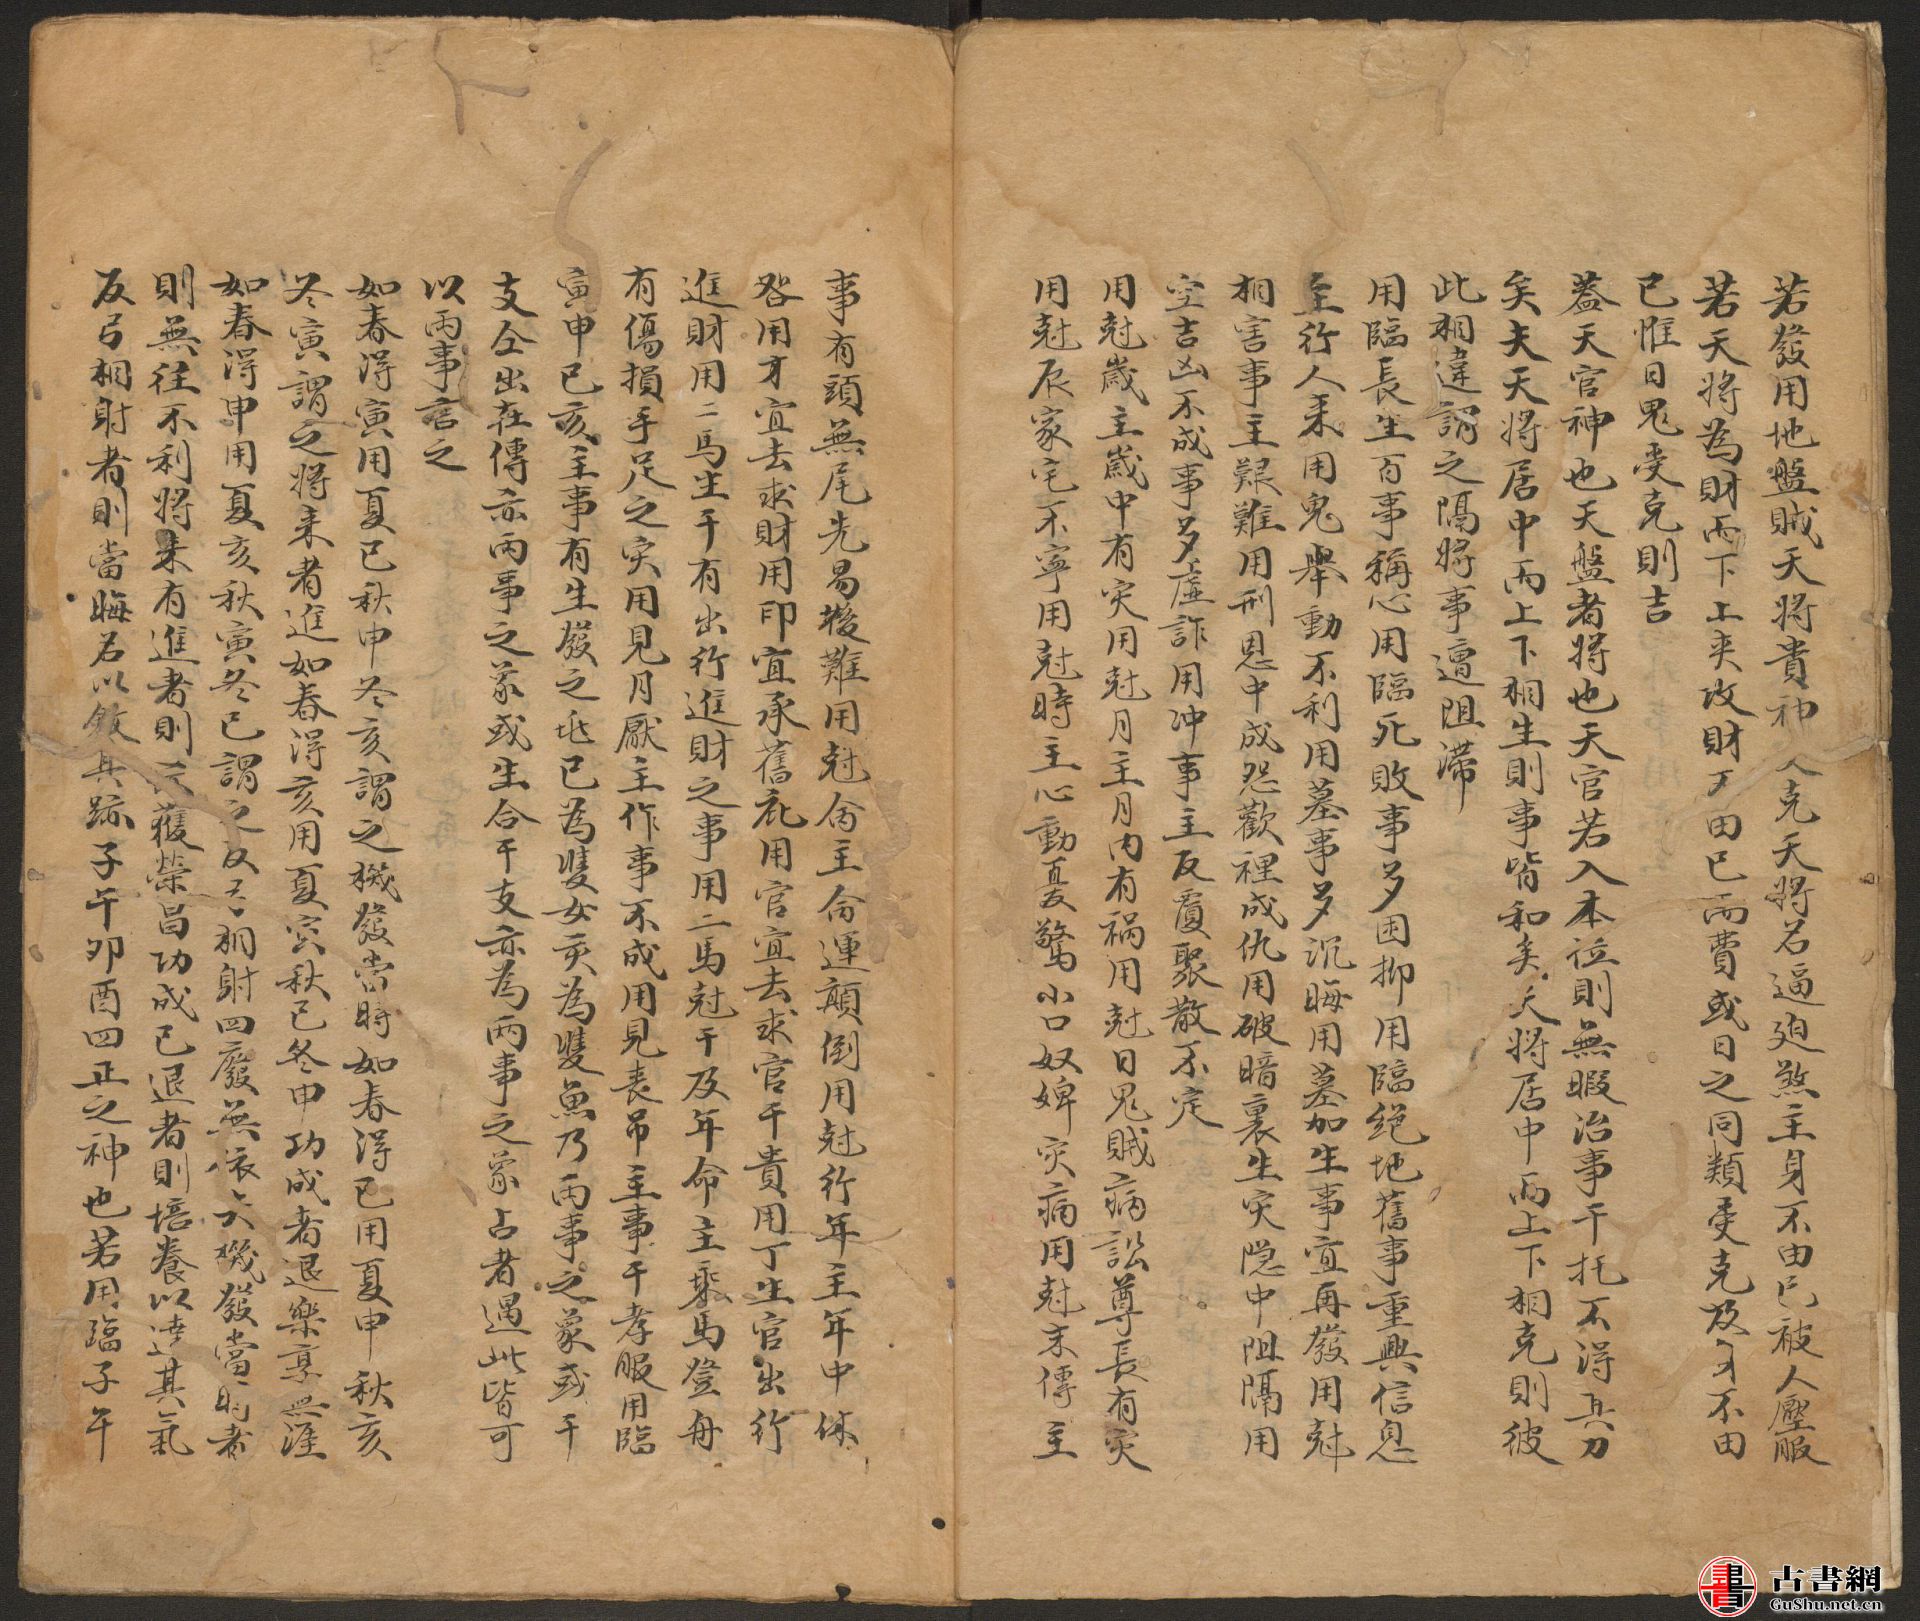 若發用地盤賊天將貴神人克天將名逼迫煞主身不由已被人壓服
若天將為財而下上夾攻財不由已而費或日之同類受克及身不由
已惟日鬼受克則吉
蓋天官神也天盤者將也天官若入本位則無暇治事干托不得其力
矣夫天將居中而上下相生則事皆和矣天將居中而上下相克則彼
此相違謂之隔將事遭阻滯
用臨長生百事稱心用臨死敗事多困抑用臨絕地舊事重興信息
至行人來用鬼舉動不利用墓事多沉晦用墓加生事宜再發用尅
相害事主艱難用刑恩中成怨歡裡成仇用破暗裏生灾隐中阻隔用
空吉凶不成事多虛詐用冲事主反覆聚散不定
用尅歲主歲中有灾用尅月主月内有禍用尅日鬼賊病訟尊長有灾
用尅辰家宅不寧用尅時主心動憂驚小口奴婢灾病用尅末傳主
事有頭無尾先易後難用尅命主命運顛倒用尅行年主年中休
咎用才宜去求財用印宜承舊礼用官宜去求官干貴用丁生官出行
進財用二馬生干有出行進財之事用二馬尅干及年命主乘馬登舟
有傷損手足之灾用見月厭主作事不成用見喪吊主事干孝服用臨
寅申巳亥主事有生發之兆巳為雙女亥為雙魚乃兩事之象或干
支仝出在傳亦兩事之象或生合干支亦為兩事之象占者遇此皆可
以兩事言之
如春得寅用夏巳秋申冬亥謂之機發當時如春得巳用夏申秋亥
冬寅謂之將來者進如春得亥用夏寅秋巳冬申功成者退樂享無涯
如春得申用夏亥秋寅冬巳謂之反弓相射四廢無依夫機發當時者
則無往不利將來有進者則獲榮昌功成已退者則培養以達其氣
反弓相射者則當晦名以斂其跡子午卯酉四正之神也若用臨子午
古書網
GuShu.net.cn